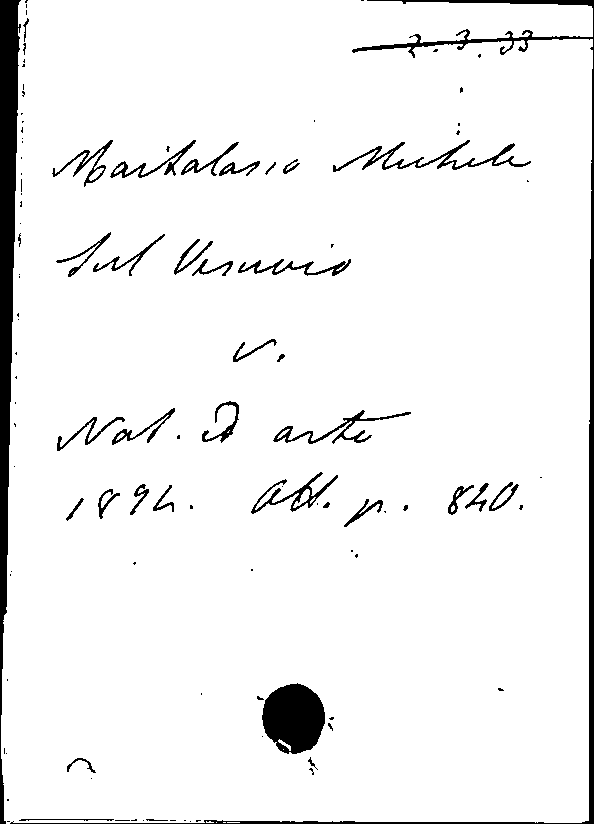 2.3.33
Maitalasso Michele
Sul Vesuvio
v.
Nat. ed arte
1894. Ott. p. 840.